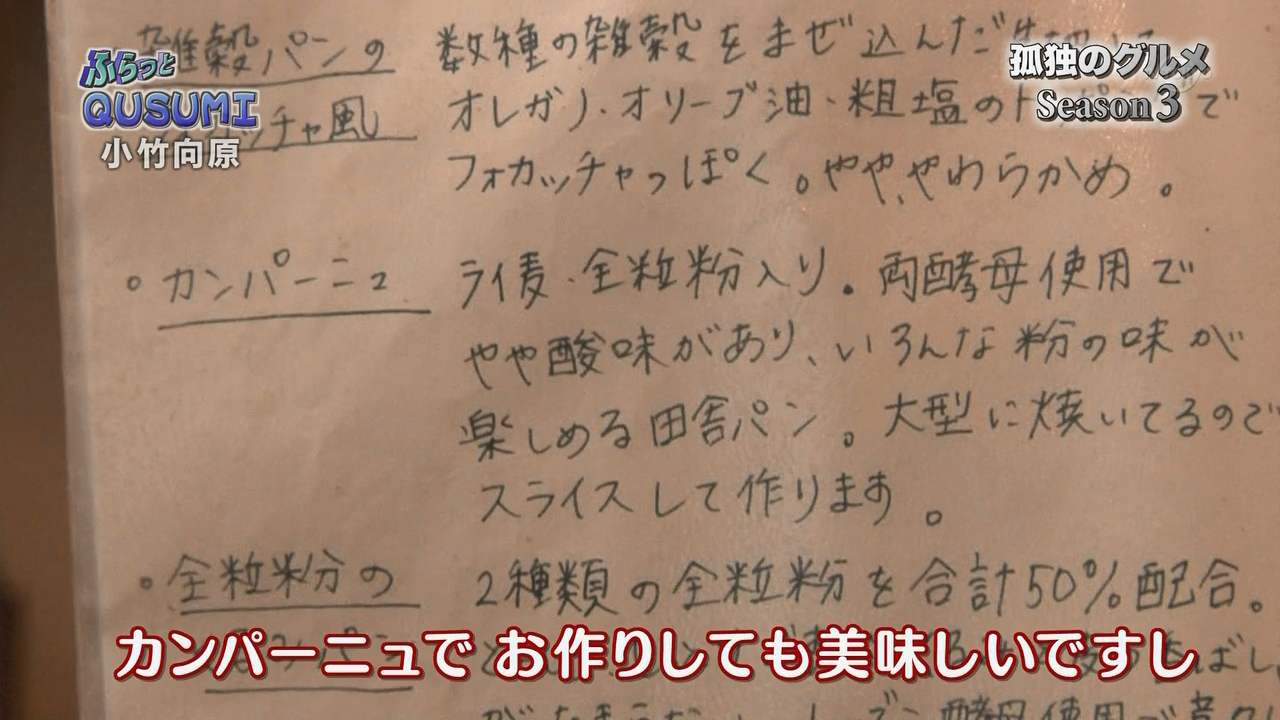 ふらっと
QUSUMI
小竹向原
孤独のグルメ
Season3
雑穀パンの
チャ風
数種の雑穀をまぜ込んだ
オレガノ・オリーブ油・粗塩のト で
フォカッチャっぽく。やや、やわらかめ。
・カンパーニュ
ライ麦・全粒粉入り。両酵母使用で
やや酸味があり、いろんな粉の味が
楽しめる田舎パン。大型に焼いてるので
スライスして作ります。
・全粒粉の
2種類の全粒粉を合計50%配合。
カンパーニュで お作りしても美味しいですし